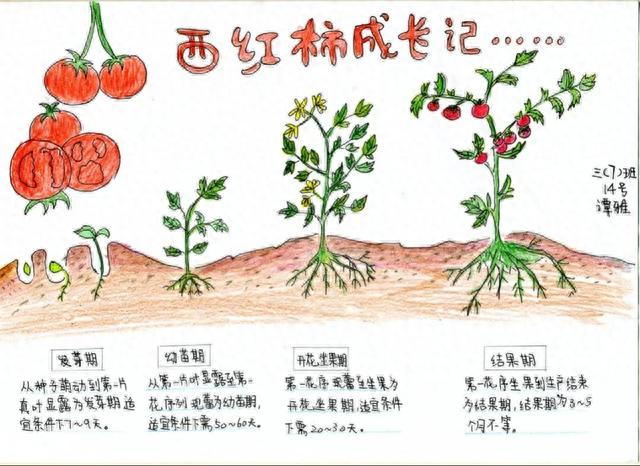 西红柿成长记……
三(7)班
14号
谭雅
发芽期
从种子萌动到第一片
真叶显露为发芽期,适
宜条件下7~9天。
幼苗期
从第一片叶显露至第一
花序列现蕾为幼苗期,
适宜条件下需50~60天。
开花坐果期
第一花序现蕾至坐果为
开花坐果期,适宜条件
下需20~30天。
结果期
第一花序坐果到生产结束
为结果期,结果期为3~5
个月不等。